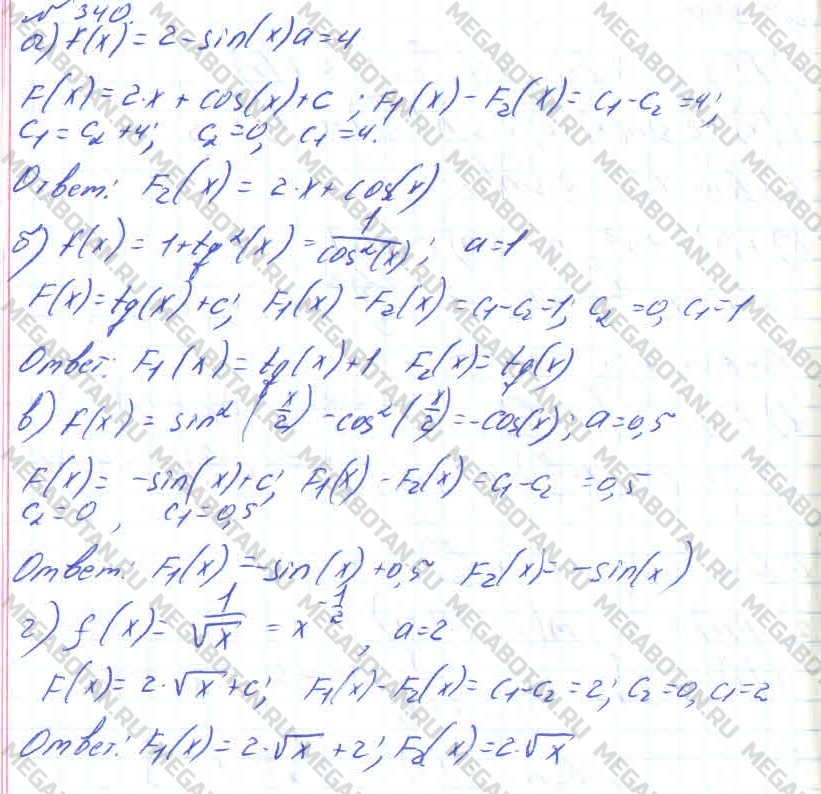 № 340.
а) f(x) = 2 - sin(x) a = 4
F(x) = 2·x + cos(x) + c ; F₁(x) - F₂(x) = c₁ - c₂ = 4;
c₁ = c₂ + 4; c₂ = 0, c₁ = 4.
Ответ: F₂(x) = 2·x + cos(x)
б) f(x) = 1 + tg²(x) = 1/cos²(x); a = 1
F(x) = tg(x) + c; F₁(x) - F₂(x) = c₁ - c₂ = 1; c₂ = 0, c₁ = 1
Ответ: F₁(x) = tg(x) + 1 F₂(x) = tg(x)
в) f(x) = sin²(x/2) - cos²(x/2) = -cos(x); a = 0,5
F(x) = -sin(x) + c; F₁(x) - F₂(x) = c₁ - c₂ = 0,5
c₂ = 0, c₁ = 0,5
Ответ: F₁(x) = -sin(x) + 0,5 F₂(x) = -sin(x)
г) f(x) = 1/√x = x^(-1/2), a = 2
F(x) = 2·√x + c; F₁(x) - F₂(x) = c₁ - c₂ = 2; c₂ = 0, c₁ = 2
Ответ: F₁(x) = 2·√x + 2; F₂(x) = 2·√x
MEGABOTAN.RU